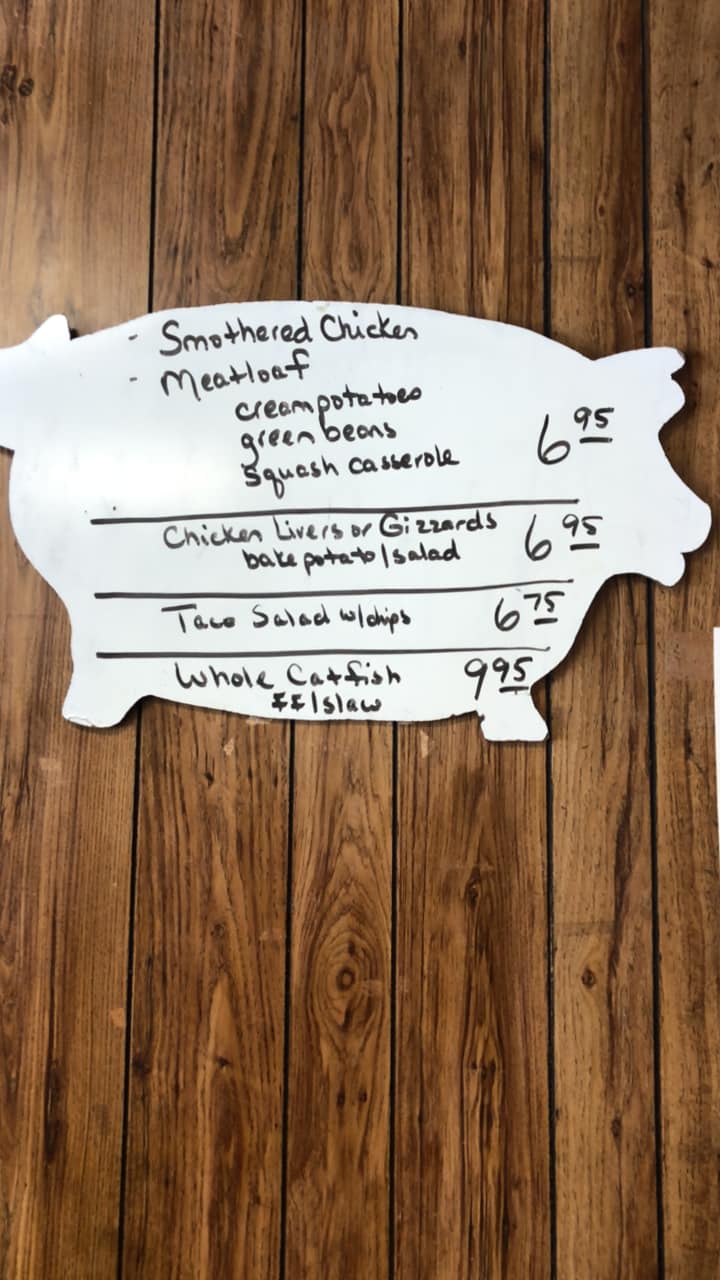 - Smothered Chicken
- Meatloaf
cream potatoes
green beans
squash casserole
6 95
Chicken Livers or Gizzards
bake potato/salad
6 95
Taco Salad w/chips 6 75
Whole Catfish 9 95
FF/slaw